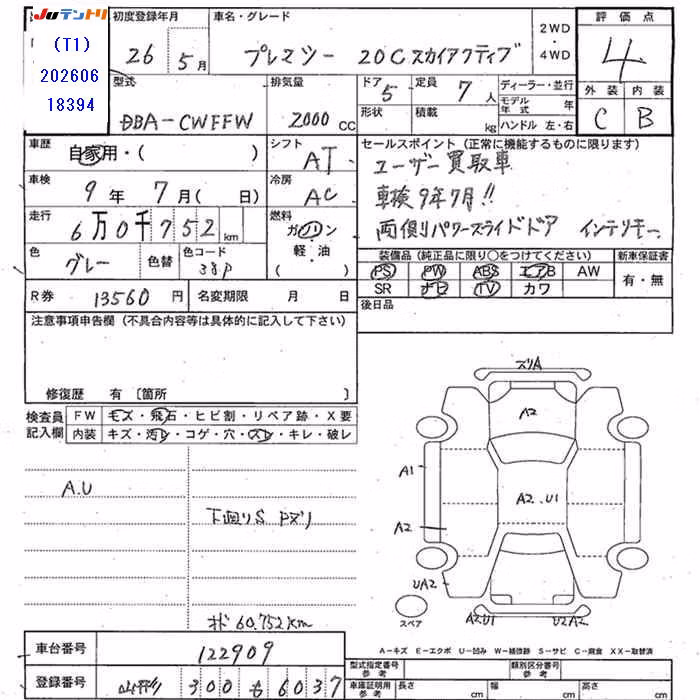 JUテントリ
(T1)
202606
18394
初度登録年月
26 5月
車名・グレード
プレマシー 20Cスカイアクティブ
2WD・4WD
評価点
4
外装 内装
C B
型式
DBA-CWFFW
排気量
2000 cc
ドア 5
形状
定員 7人
積載 kg
ディーラー・並行
モデル年式 年
ハンドル 左・右
車歴
自家用・( )
シフト
AT
車検
9年 7月( 日)
冷房
AC
走行
6万0千752km
燃料
ガソリン
軽・油
( )
色
グレー
色替
色コード
38P
セールスポイント(正常に機能するものに限ります)
ユーザー買取車
車検9年7月!!
両側パワースライドドア インテリキー
装備品(純正品に限り○をつけてください)
PS PW ABS エアB AW
SR ナビ TV カワ
新車保証書
有・無
後日品
R券 13560円
名変期限 月 日
注意事項申告欄(不具合内容等は具体的に記入して下さい)
修復歴 有〔箇所 〕
検査員記入欄
FW キズ・飛石・ヒビ割・リペア跡・X要
内装 キズ・汚レ・コゲ・穴・スレ・キレ・破レ
A.U
下回りS Pズリ
オド60,752km
ズリA
A2
A1
A2.U1
A2
UA2
A2U1
U2A2
スペア
A-キズ E-エクボ U-凹み W-補修跡 S-サビ C-腐食 XX-取替済
車台番号
122909
登録番号
山形 300 も 6037
型式指定番号
参考
類別区分番号
参考
車庫証明用
参考
長さ cm
幅 cm
高さ cm